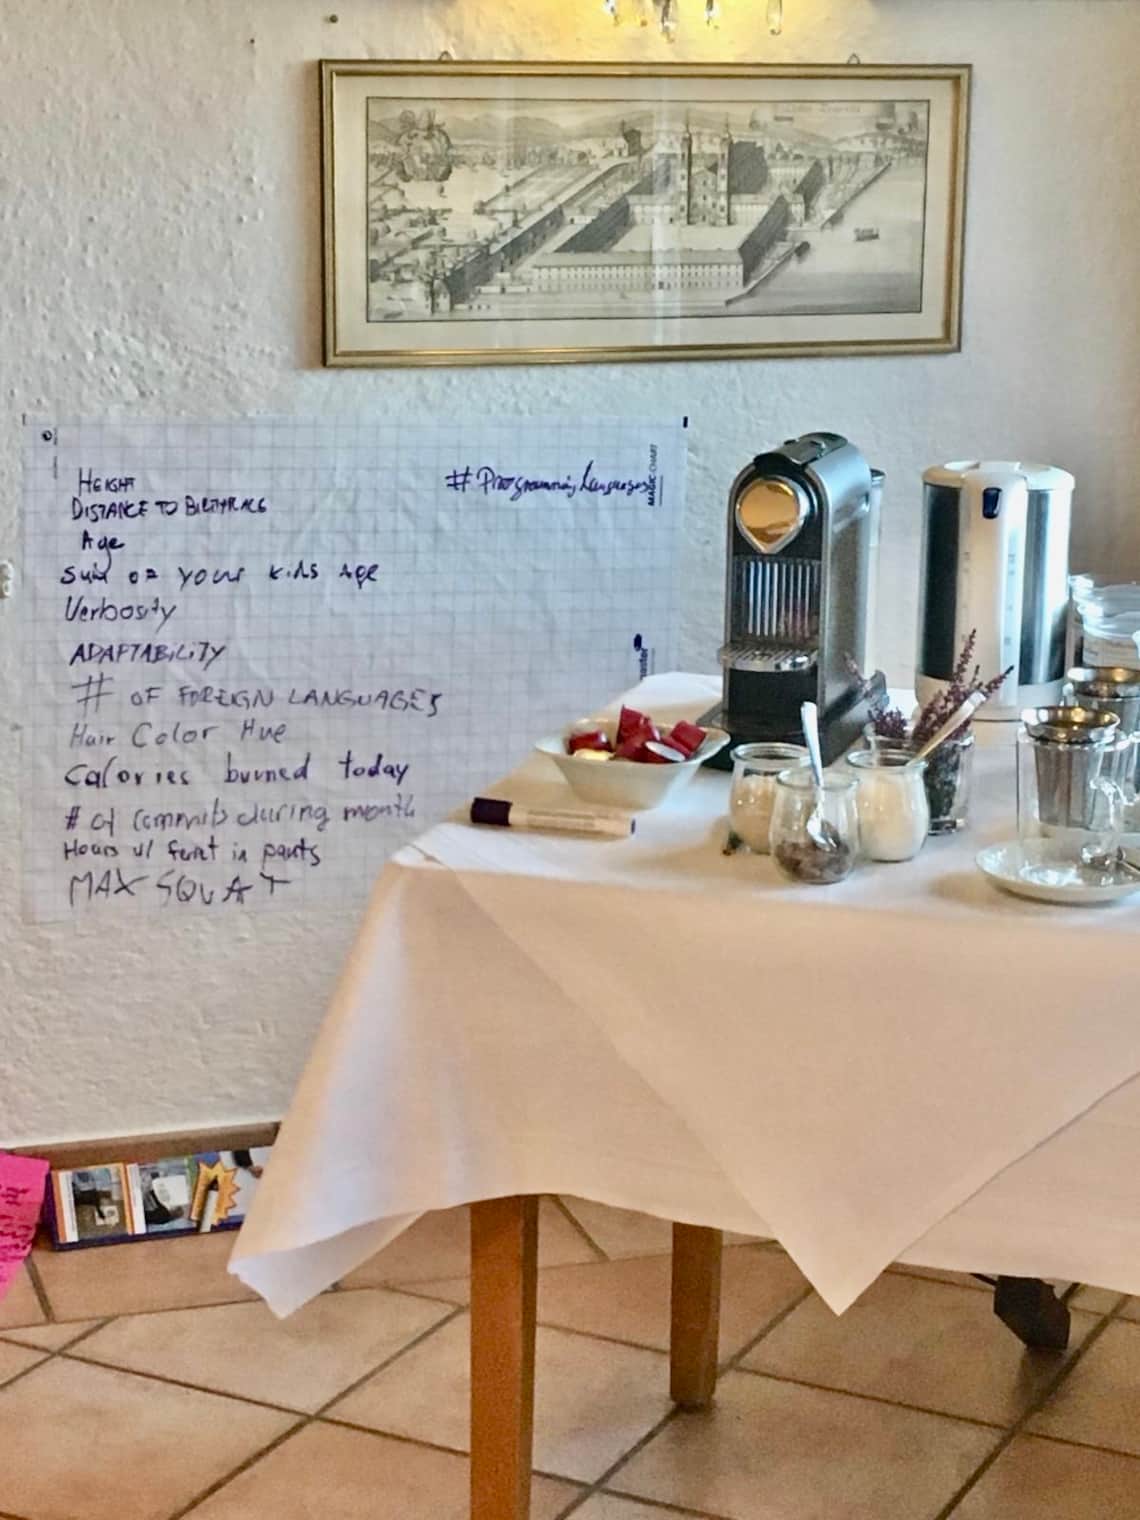 HEIGHT
DISTANCE TO BIRTHPLACE
Age
Sum of your kids age
Verbosity
ADAPTABILITY
# OF FOREIGN LANGUAGES
Hair Color Hue
Calories burned today
# of commits during month
Hours w/ ferret in pants
MAX SQUAT
# Programming Languages
MAGIC-CHART